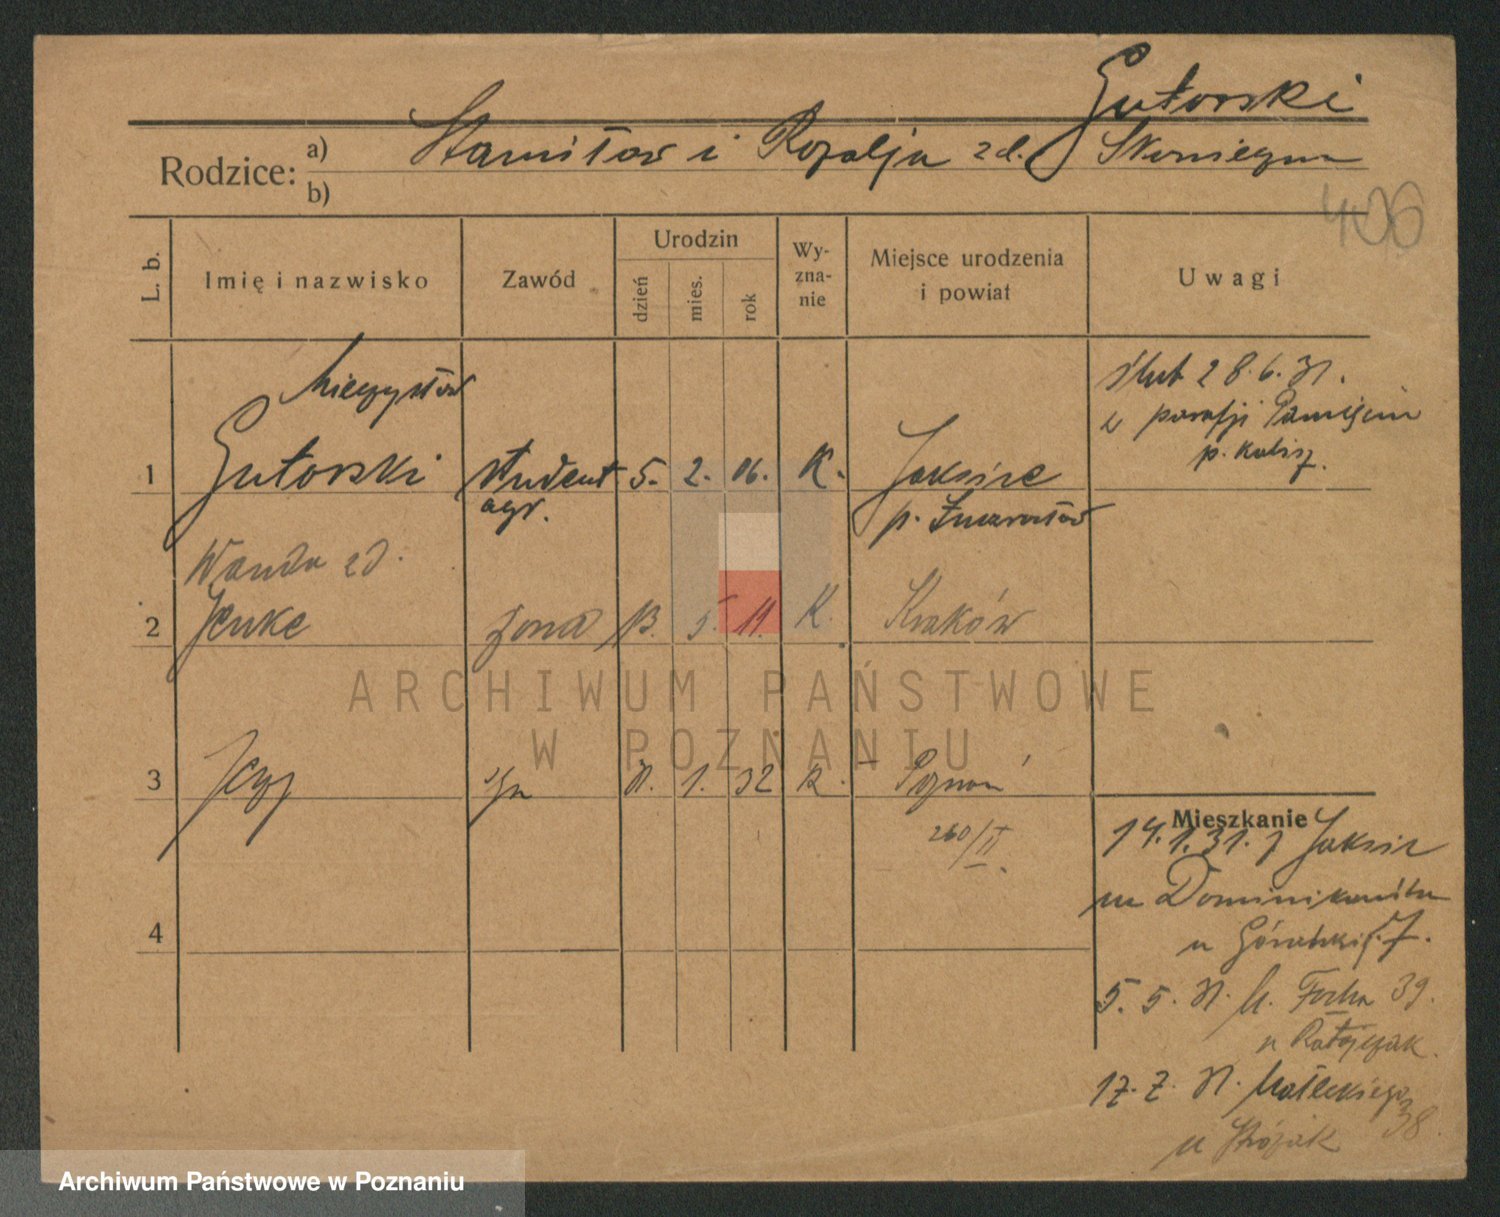 Gutorski
Rodzice: a) Stanisław i Rozalja zd.
b)
406
L. b.
Imię i nazwisko
Zawód
Urodzin
dzień
mies.
rok
Wy-
zna-
nie
Miejsce urodzenia
i powiat
Uwagi
Mieczysław
1 Gutorski student 5. 2. 06. K. Jaksice
agr. p. Inowrocław
ślub 28.6.31.
w parafji Pamięcin
p. Kalisz.
Wanda zd.
2 Jenke żona 13. 5. 11. K. Kraków
3 Jerzy syn 1. 32 K. Poznań
260/II.
4
Mieszkanie
14.1.31. z Jaksic
na Dominikańska
u 7.
5. 5. 31. M. Focha 39.
u Ratajczak.
17. 7. 31. Małeckiego
38.
u
ARCHIWUM PAŃSTWOWE
W POZNANIU
Archiwum Państwowe w Poznaniu